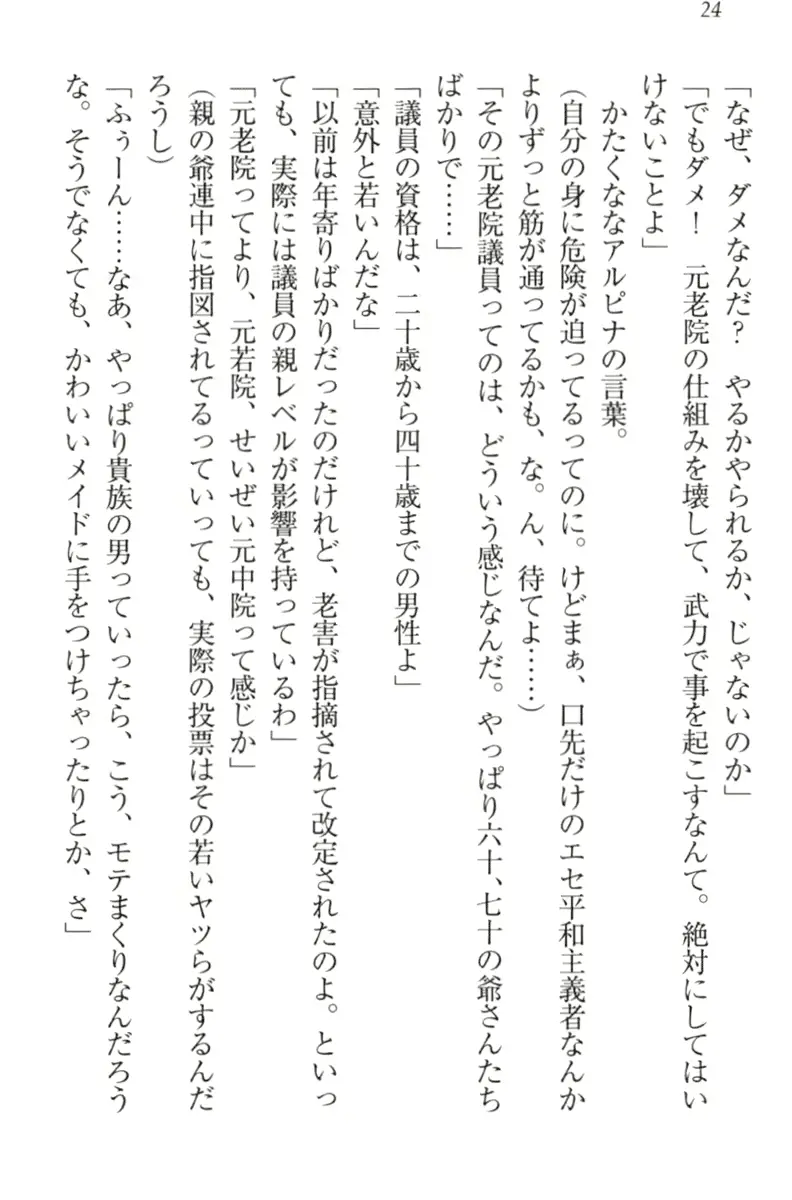 24
「なぜ、ダメなんだ？　やるかやられるか、じゃないのか」
「でもダメ！　元老院の仕組みを壊して、武力で事を起こすなんて。絶対にしてはい
けないことよ」
　かたくななアルピナの言葉。
（自分の身に危険が迫ってるってのに。けどまぁ、口先だけのエセ平和主義者なんか
よりずっと筋が通ってるかも、な。ん、待てよ……）
「その元老院議員ってのは、どういう感じなんだ。やっぱり六十、七十の爺さんたち
ばかりで……」
「議員の資格は、二十歳から四十歳までの男性よ」
「意外と若いんだな」
「以前は年寄りばかりだったのだけれど、老害が指摘されて改定されたのよ。といっ
ても、実際には議員の親レベルが影響を持っているわ」
「元老院ってより、元若院、せいぜい元中院って感じか」
（親の爺連中に指図されてるっていっても、実際の投票はその若いヤツらがするんだ
ろうし）
「ふぅーん……なあ、やっぱり貴族の男っていったら、こう、モテまくりなんだろう
な。そうでなくても、かわいいメイドに手をつけちゃったりとか、さ」